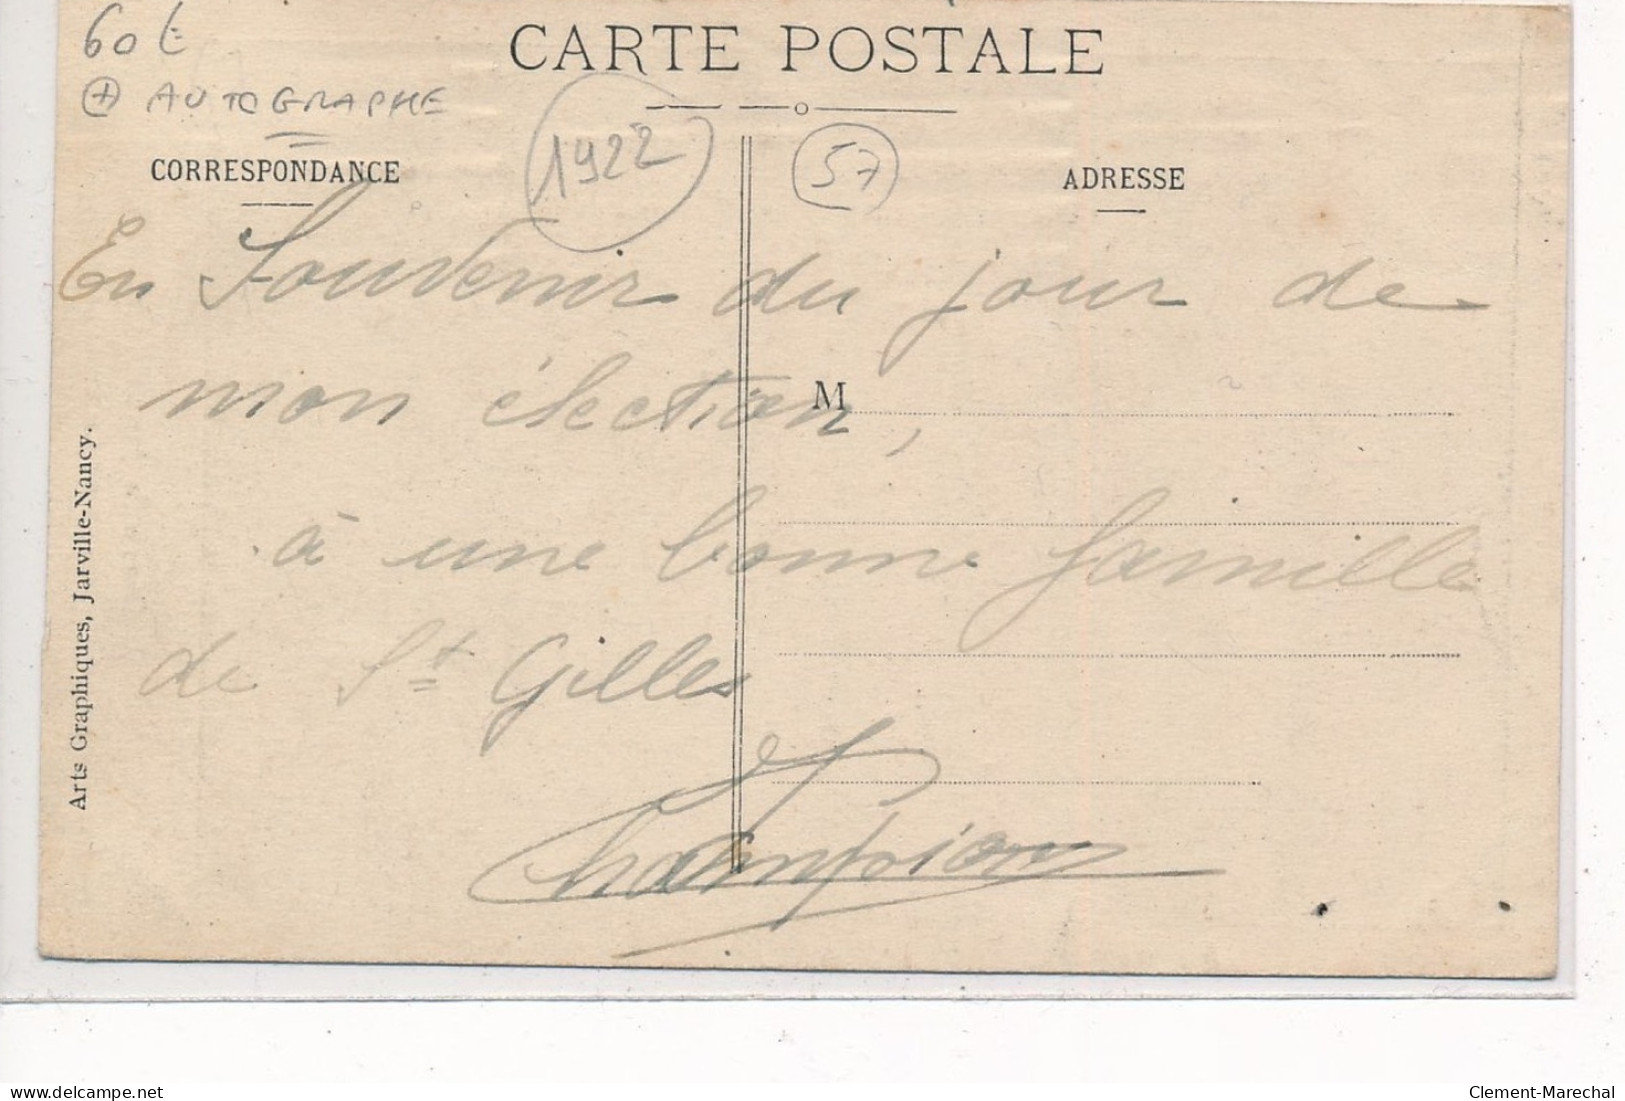 60 €
CARTE POSTALE
+ AUTOGRAPHE
1922
57
CORRESPONDANCE
ADRESSE
En Souvenir du jour de
mon élection,
M
à une bonne famille
de St Gilles
Champion
Arts Graphiques, Jarville-Nancy.
delcampe.net
Clement-Marechal